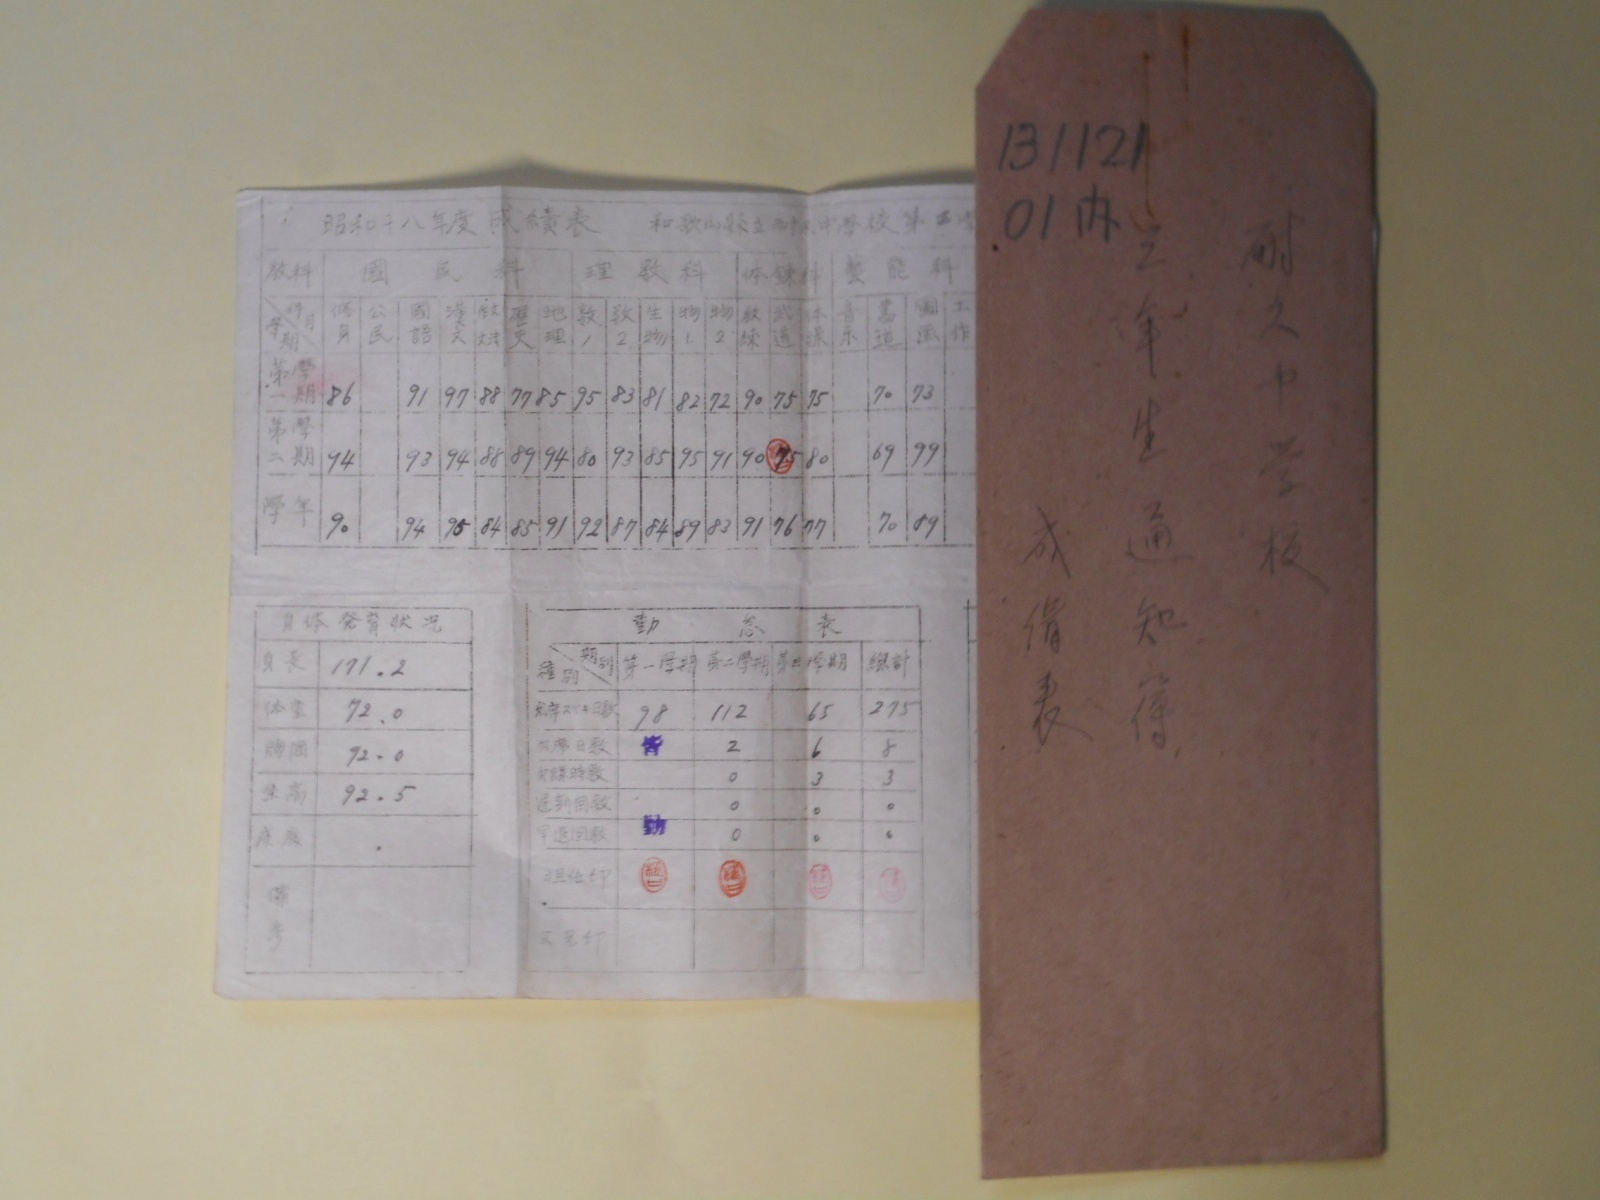 昭和十八年度成績表 和歌山縣立耐久中學校第三学
教科 國民科 理數科 体錬科 藝能科
科目 學期 修身 公民 國語 漢文 歴史 地理 数1 数2 生物 物1 物2 教練 武道 体操 音樂 書道 圖画 工作
第一學期 86 91 97 88 77 85 95 83 81 82 72 90 75 75 70 73
第二學期 94 93 94 88 89 94 80 93 85 95 91 90 75 80 69 99
學年 90 94 95 84 85 91 92 87 84 89 83 91 76 77 70 89
身体発育状况
身長 171.2
体重 72.0
胸囲 92.0
坐高 92.5
疾病
備考
勤怠表
種別 期別 第一學期 第二學期 第三學期 總計
98 112 65 275
欠席日数 皆 2 6 8
欠課時数 0 3 3
遅刻回数 0 0 0
早退回数 勤 0 0 0
担任印
父兄印
131121
01内
耐久中学校
三年生通知簿
成績表